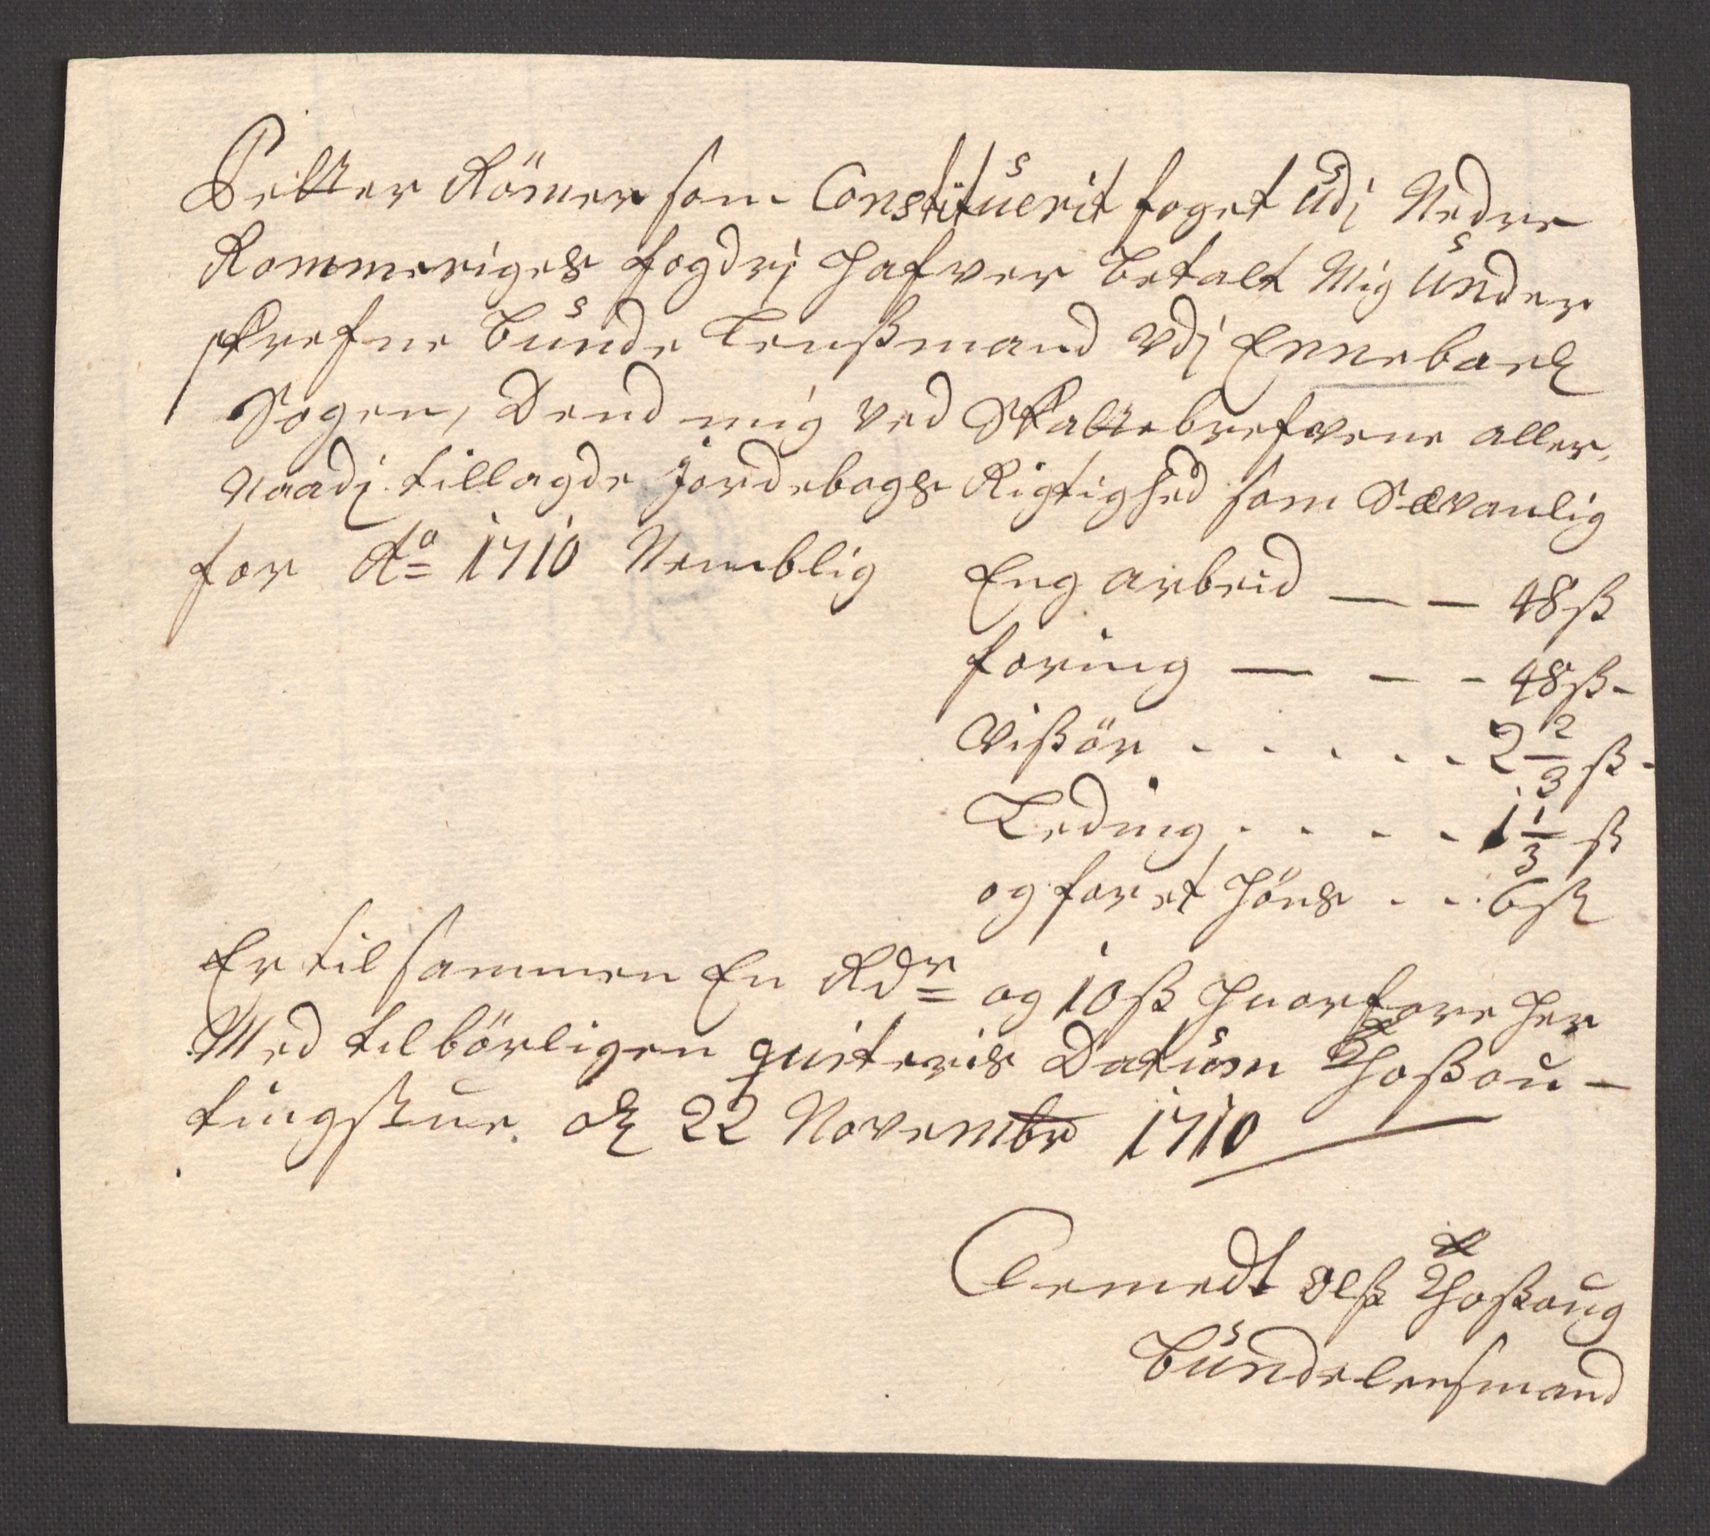 Petter Römer som Constituerit foget udj Nedre
Rommeriges fogdrj hafver betalt Mig under
skrefne bunde Lensmand udj Enneback
Sogen, Dend mig ved Skattebrefvene aller,
Naadj. tillagde jordebogs Rigtighed som Sædvanlig
for Ao 1710 Nemblig
Eng arbeid — — 48 ß
foring — — - 48 ß -
Vißör . . . . . 2 2/3 ß -
Leding . . . . 1 1/3 ß
og for et Höns . . 6 ß
Er til sammen En Rdr og 10 ß huorfore her
Med tilbörligen quiteris Datum Thoßou -
tingstue. d 22 Novembr 1710
Clemedt olß Thoßoug
bundelensmand